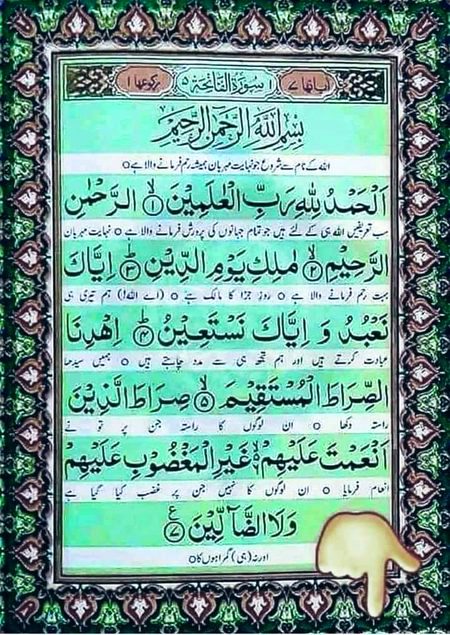 آیاتھا ٧ ١ سُوْرَةُ الْفَاتِحَةِ ٥ رکوعھا ١
بِسْمِ اللّٰهِ الرَّحْمٰنِ الرَّحِيْمِ
اللہ کے نام سے شروع جو نہایت مہربان ہمیشہ رحم فرمانے والا ہے o
اَلْحَمْدُ لِلّٰهِ رَبِّ الْعٰلَمِيْنَ ۙ﴿١﴾ الرَّحْمٰنِ
سب تعریفیں اللہ ہی کے لئے ہیں جو تمام جہانوں کی پرورش فرمانے والا ہے o نہایت مہربان
الرَّحِيْمِ ۙ﴿٢﴾ مٰلِكِ يَوْمِ الدِّيْنِ ؕ﴿٣﴾ اِيَّاكَ
بہت رحم فرمانے والا ہے o روز جزا کا مالک ہے o (اے اللہ!) ہم تیری ہی
نَعْبُدُ وَ اِيَّاكَ نَسْتَعِيْنُ ؕ﴿٤﴾ اِهْدِنَا
عبادت کرتے ہیں اور ہم تجھ ہی سے مدد چاہتے ہیں o ہمیں سیدھا
الصِّرَاطَ الْمُسْتَقِيْمَ ۙ﴿٥﴾ صِرَاطَ الَّذِيْنَ
راستہ دکھا o ان لوگوں کا راستہ جن پر تو نے
اَنْعَمْتَ عَلَيْهِمْ ۙ۬ غَيْرِ الْمَغْضُوْبِ عَلَيْهِمْ
انعام فرمایا o ان لوگوں کا نہیں جن پر غضب کیا گیا ہے
وَلَا الضَّآلِّيْنَ ﴿٧﴾ ع
اور نہ (ہی) گمراہوں کا o